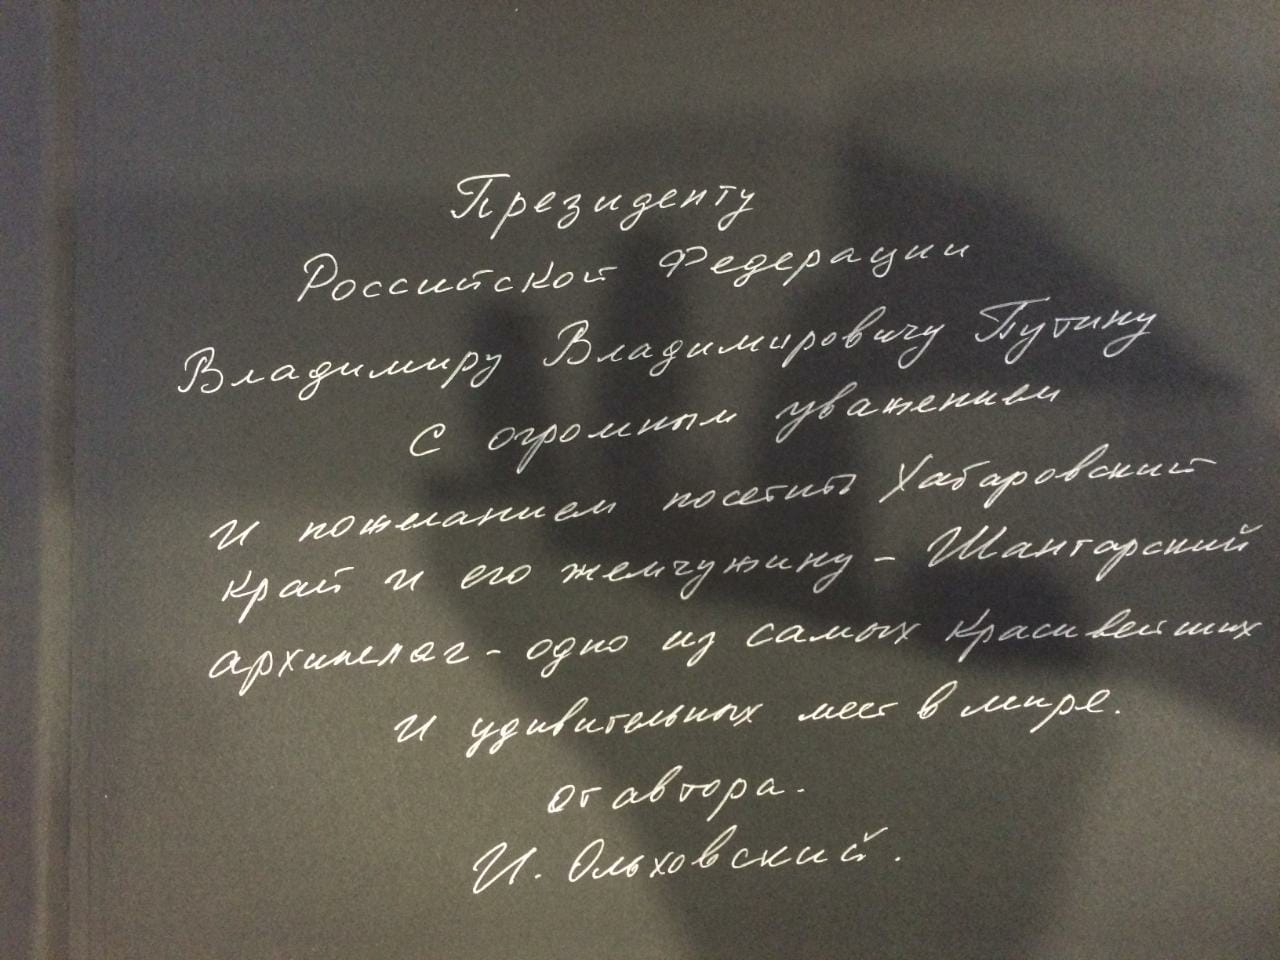 Президенту
Российской Федерации
Владимиру Владимировичу Путину
С огромным уважением
И пожеланием посетить Хабаровский
край и его жемчужину - Шантарский
архипелаг - одно из самых красивейших
И удивительных мест в мире.
от автора.
И. Ольховский.